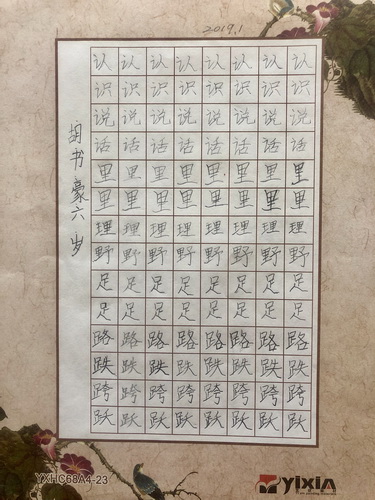 2019.1
认认认认认认认认
识识识识识识识识
说说说说说说说说
话话话话话话话话
里里里里里里里里
里里里里里里里里
理理理理理理理理
野野野野野野野野
足足足足足足足足
足足足足足足足足
路路路路路路路路
跌跌跌跌跌跌跌跌
跨跨跨跨跨跨跨跨
跃跃跃跃跃跃跃跃
胡书豪六岁
YXHC68A4-23
YIXIN